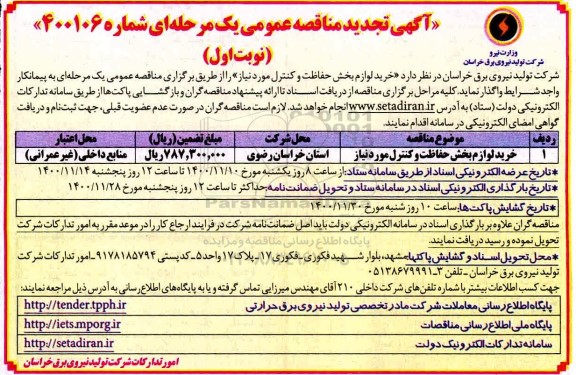 «آگهی تجدید مناقصه عمومی یک مرحله‌ای شماره ۴۰۰۱۰۶»
(نوبت اول)
وزارت نیرو
شرکت تولید نیروی برق خراسان
شرکت تولید نیروی برق خراسان در نظر دارد «خرید لوازم بخش حفاظت و کنترل مورد نیاز» را از طریق برگزاری مناقصه عمومی یک مرحله‌ای به پیمانکار
واجد شرایط واگذار نماید. کلیه مراحل برگزاری مناقصه از دریافت اسناد تا ارائه پیشنهاد مناقصه گران و بازگشایی پاکت‌ها از طریق سامانه تدارکات
الکترونیکی دولت (ستاد) به آدرس www.setadiran.ir انجام خواهد شد. لازم است مناقصه گران در صورت عدم عضویت قبلی، جهت ثبت نام و دریافت
گواهی امضای الکترونیکی در سامانه اقدام نمایند.
ردیف موضوع مناقصه محل شرکت مبلغ تضمین (ریال) محل اعتبار
۱ خرید لوازم بخش حفاظت و کنترل مورد نیاز استان خراسان رضوی ۷۸۷,۳۰۰,۰۰۰ ریال منابع داخلی (غیر عمرانی)
*تاریخ عرضه الکترونیکی اسناد از طریق سامانه ستاد: از ساعت ۸ روز یکشنبه مورخ ۱۴۰۰/۱۱/۱۰ تا ساعت ۱۲ روز پنجشنبه ۱۴۰۰/۱۱/۱۴
*تاریخ بارگذاری الکترونیکی اسناد در سامانه ستاد و تحویل ضمانت نامه: حداکثر تا ساعت ۱۲ روز پنجشنبه مورخ ۱۴۰۰/۱۱/۲۸
*تاریخ گشایش پاکت ها: ساعت ۱۰ روز شنبه مورخ ۱۴۰۰/۱۱/۳۰
مناقصه گران علاوه بر بارگذاری اسناد در سامانه الکترونیکی دولت باید اصل ضمانت نامه شرکت در فرایند ارجاع کار را در موعد مقرر به امور تدارکات شرکت
تحویل نموده و رسید دریافت نمایند.
*محل تحویل اسناد و گشایش پاکتها: مشهد، بلوار شهید فکوری - فکوری ۱۷ - پلاک ۱۷ واحد ۵ - کدپستی ۹۱۷۸۱۸۵۷۹۴ امور تدارکات شرکت
تولید نیروی برق خراسان - تلفن ۳-۰۵۱۳۸۶۷۹۹۹۱
جهت کسب اطلاعات بیشتر با شماره تلفن های شرکت داخلی ۲۱۰ آقای مهندس میرزایی تماس گرفته و یا به پایگاه های اطلاع رسانی به آدرس ذیل مراجعه نمایند:
پایگاه اطلاع رسانی معاملات شرکت مادر تخصصی تولید نیروی برق حرارتی http://tender.tpph.ir
پایگاه ملی اطلاع رسانی مناقصات http://iets.mporg.ir
سامانه تدارکات الکترونیک دولت http://setadiran.ir
امور تدارکات شرکت تولید نیروی برق خراسان